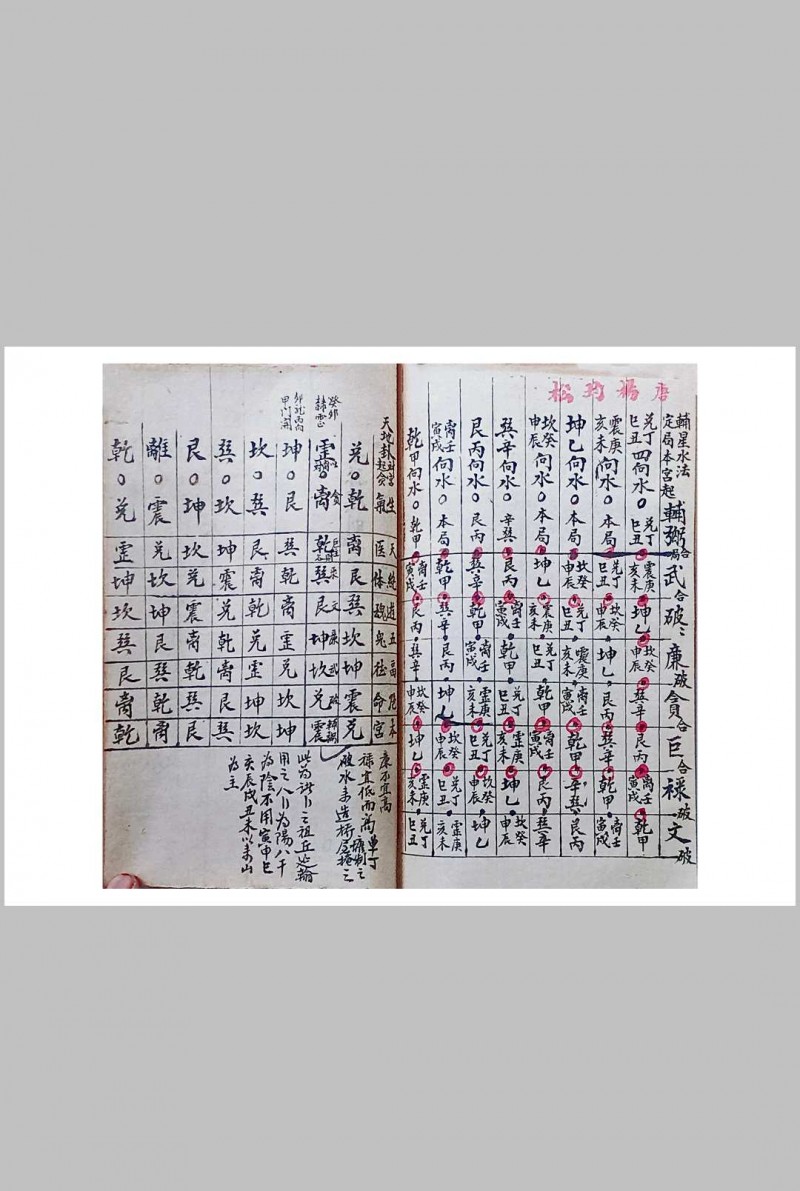 唐楊筠松
輔星水法
定局本宮起 輔弼合局 武合 破破 廉破 貪合 巨合 祿破 文破
兌丁巳丑四向水 兌丁巳丑 震庚亥未 坤乙 坎癸申辰 巽辛 艮丙 离壬寅戌 乾甲
震庚亥未向水 本局 兌丁巳丑 坎癸申辰 坤乙 艮丙 巽辛 乾甲 离壬寅戌
坤乙向水 本局 坎癸申辰 兌丁巳丑 震庚亥未 离壬寅戌 乾甲 辛巽 艮丙
坎癸申辰向水 本局 坤乙 震庚亥未 兌丁巳丑 乾甲 离壬寅戌 艮丙 巽辛
巽辛向水 辛巽 艮丙 离壬寅戌 乾甲 兌丁巳丑 震庚亥未 坤乙 坎癸申辰
艮丙向水 艮丙 巽辛 乾甲 离壬寅戌 震庚亥未 兌丁巳丑 坎癸申辰 坤乙
离壬寅戌向水 本局 乾甲 巽辛 艮丙 坤乙 坎癸申辰 兌丁巳丑 震庚亥未
乾甲向水 乾甲 离壬寅戌 艮丙 巽辛 坎癸申辰 坤乙 震庚亥未 兌丁巳丑
天地卦 對宮起貪 生氣 天医 絕体 遊魂 五鬼 本宮
兌 乾 离 艮 巽 坎 坤 震 兌
震 离 乾 巽 艮 坤 坎 兌 震
坤 艮 巽 乾 离 震 兌 坎 坤
坎 巽 艮 离 乾 兌 震 坤 坎
巽 坎 坤 震 兌 乾 离 艮 巽
艮 坤 坎 兌 震 离 乾 巽 艮
離 震 兌 坎 坤 艮 巽 乾 离
乾 兌 震 坤 坎 巽 艮 离 乾
廉不宜高
祿宜低而离
為陰不用寅申巳
亥辰戌丑未以来山
為主